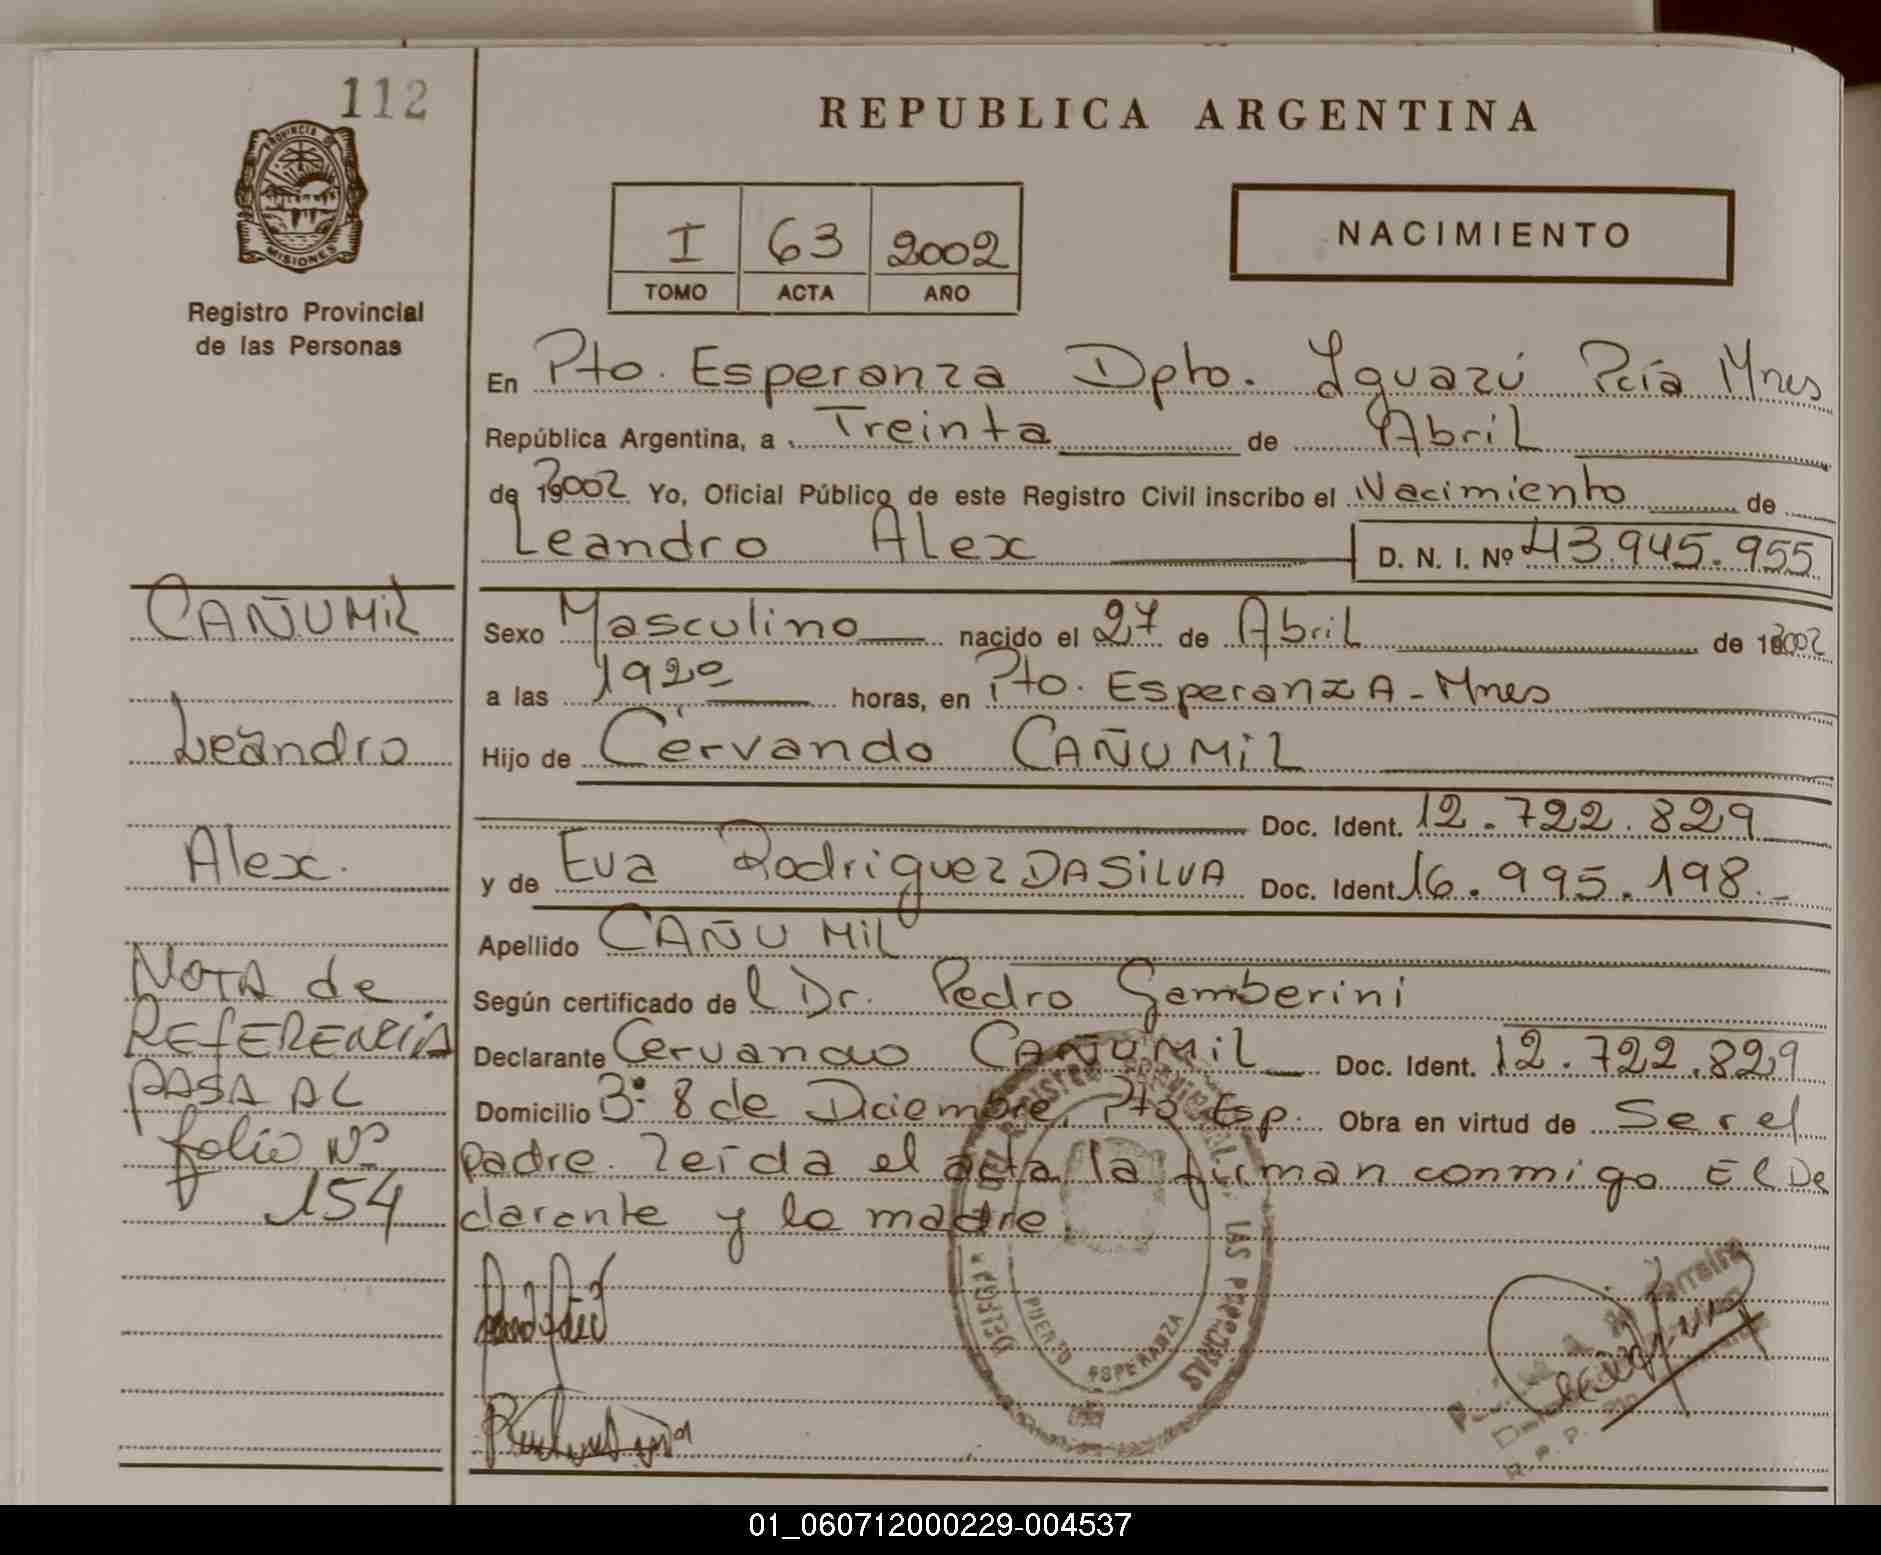 112
REPUBLICA ARGENTINA
PROVINCIA DE
MISIONES
Registro Provincial
de las Personas
I 63 2002
TOMO ACTA AÑO
NACIMIENTO
En Pto. Esperanza Dpto. Iguazú Pcía Mnes
República Argentina, a Treinta de Abril
de 192002 Yo, Oficial Público de este Registro Civil inscribo el Nacimiento de
Leandro Alex D. N. I. Nº 43.945.955
CAÑUMiL
Sexo Masculino nacido el 27 de Abril de 192002
a las 1920 horas, en Pto. EsperanzA - Mnes
Leandro
Hijo de Cervando CAÑUMiL
Doc. Ident. 12.722.829
Alex.
y de Eva Rodriguez DASiLVA Doc. Ident. 16.995.198.-
Apellido CAÑUMiL
NOTA de
REfERENCiA
PASA AL
folio Nº
154
Según certificado de l Dr. Pedro Gamberini
Declarante Cervando CAÑUMiL Doc. Ident. 12.722.829
Domicilio Bº 8 de Diciembre Pto Esp. Obra en virtud de Ser el
padre. leída el acta la firman conmigo El De
clarante y la madre.
DEL REGISTRO PROVINCIAL DE LAS PERSONAS
PUERTO ESPERANZA
01_060712000229-004537